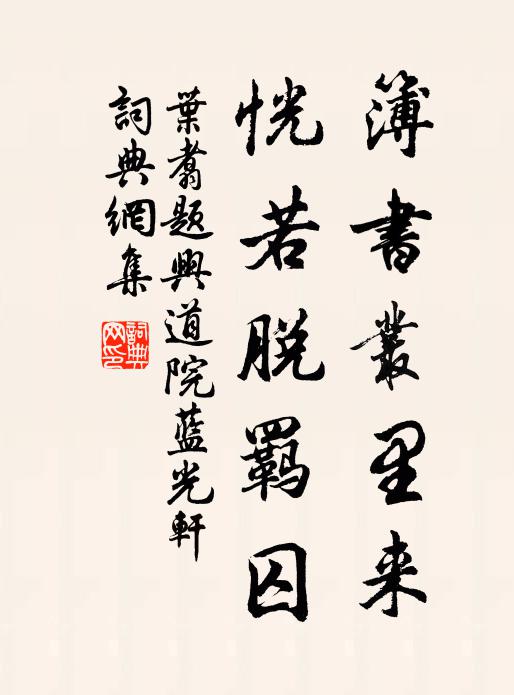 簿書叢里来
恍若脱羈囚
葉翥题興道院藍光軒
詞典網集
詞典
网印